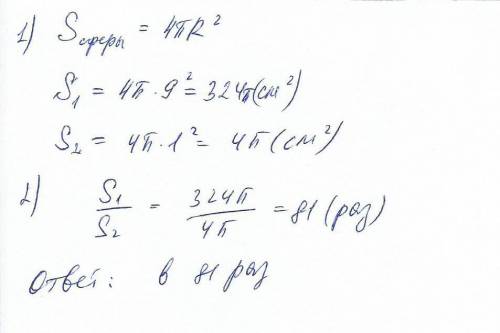 1) Sсферы = 4πR²
S₁ = 4π · 9² = 324π (см²)
S₂ = 4π · 1² = 4π (см²)
2) S₁/S₂ = 324π/4π = 81 (раз)
Ответ: в 81 раз